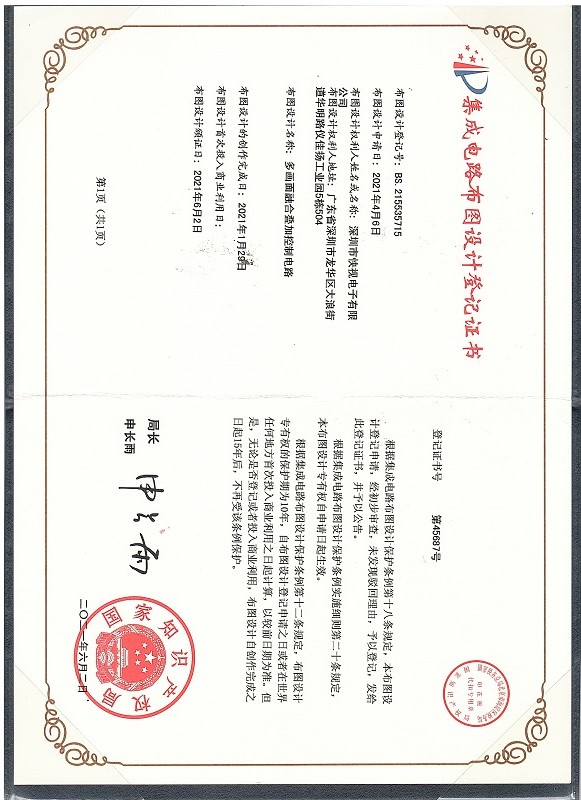 集成电路布图设计登记证书
布图设计登记号：BS. 215535715
布图设计申请日：2021年4月6日
布图设计权利人姓名或名称：深圳市快视电子有限
公司
布图设计权利人地址：广东省深圳市龙华区大浪街
道华明路仪佳扬工业园5栋504
布图设计名称：多画面融合叠加控制电路
布图设计的创作完成日：2021年1月29日
布图设计首次投入商业利用日：
布图设计颁证日：2021年6月2日
第1页（共1页）
登记证书号 第45687号
根据集成电路布图设计保护条例第十八条规定，本布图设
计登记申请，经初步审查，未发现驳回理由，予以登记，发给
此登记证书，并予以公告。
根据集成电路布图设计保护条例实施细则第二十条规定，
本布图设计专有权自申请日起生效。
根据集成电路布图设计保护条例第十二条规定，布图设计
专有权的保护期为10年，自布图设计登记申请之日或者在世界
任何地方首次投入商业利用之日起计算，以较前日期为准。但
是，无论是否登记或者投入商业利用，布图设计自创作完成之
日起15年后，不再受该条例保护。
局长
申长雨
申长雨
国家知识产权局
二〇二一年六月二日